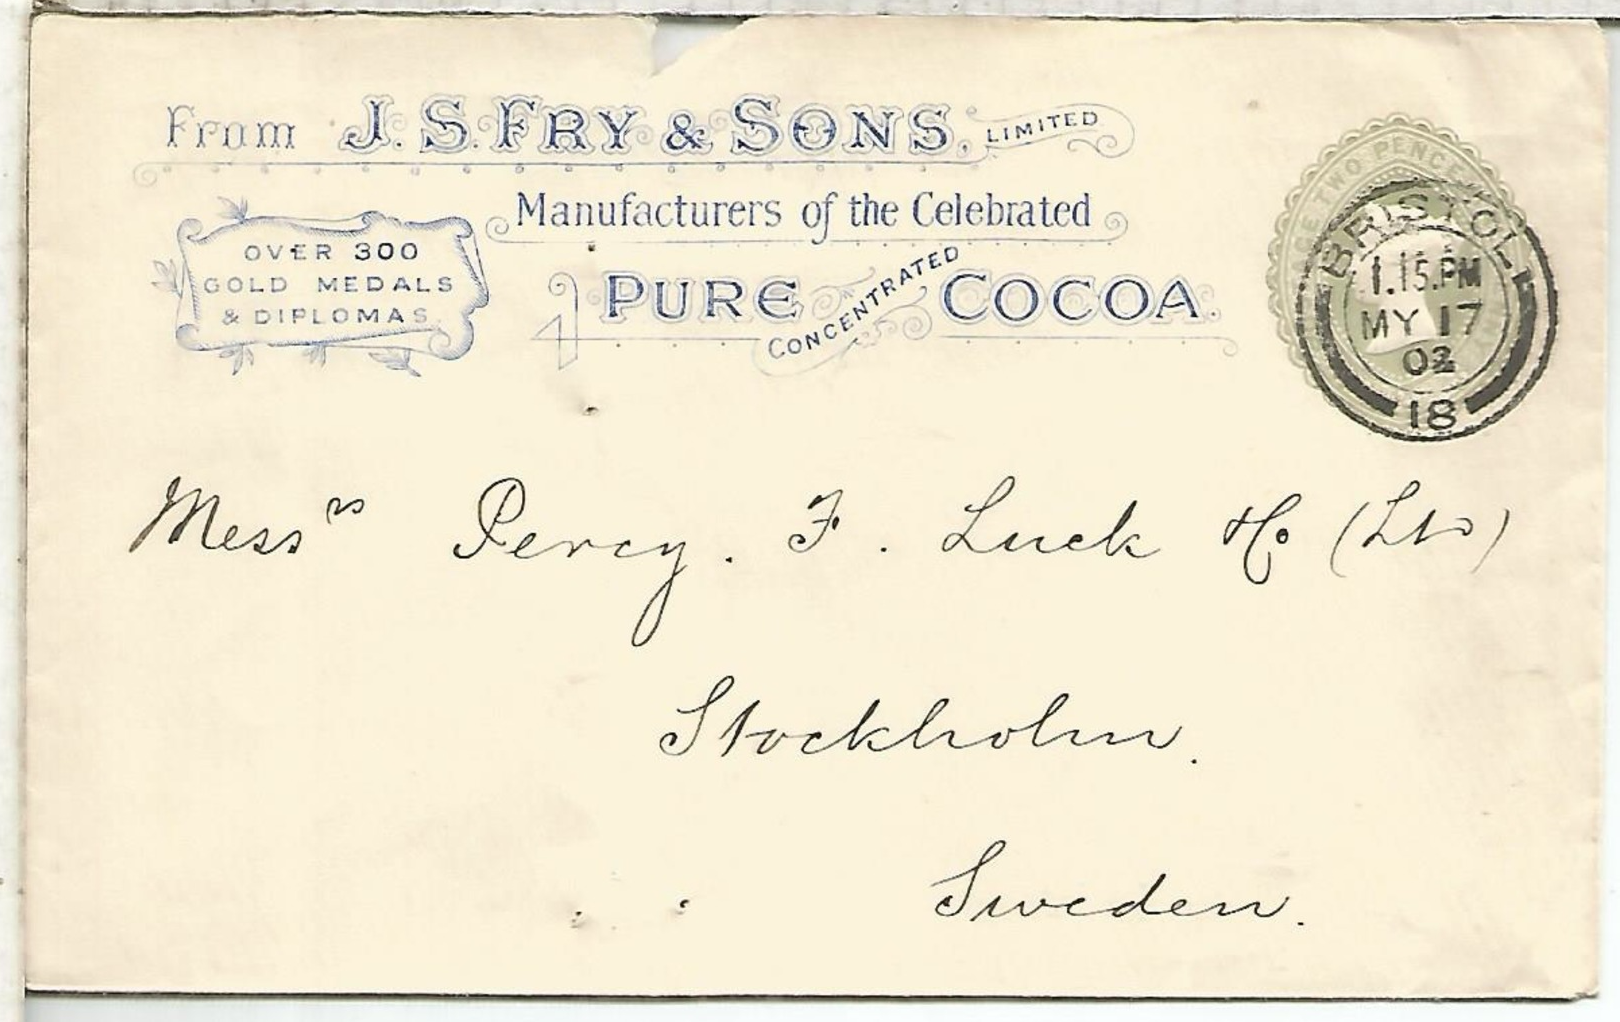 From J. S. FRY & SONS, LIMITED
Manufacturers of the Celebrated
PURE CONCENTRATED COCOA.
OVER 300
GOLD MEDALS
& DIPLOMAS.
TWO PENCE
BRISTOL
1.15.PM
MY 17
02
18
Messrs Percy. F. Luck & Co (Ltd)
Stockholm.
Sweden.